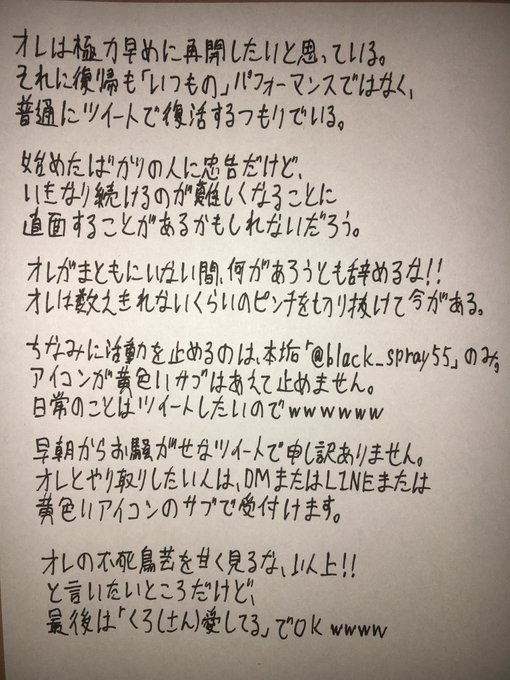 オレは極力早めに再開したいと思っている。
それに復帰も「いつもの」パフォーマンスではなく、
普通にツイートで復活するつもりでいる。
始めたばかりの人に忠告だけど、
いきなり続けるのが難しくなることに
直面することがあるかもしれないだろう。
オレがまともにいない間、何があろうとも辞めるな!!
オレは数えきれないくらいのピンチを切り抜けて今がある。
ちなみに活動を止めるのは、本垢「@black_spray55」のみ。
アイコンが黄色いサブはあえて止めません。
日常のことはツイートしたいのでwwwwww
早朝からお騒がせなツイートで申し訳ありません。
オレとやり取りしたい人は、DMまたはLINEまたは
黄色いアイコンのサブで受付けます。
オレの不死鳥芸を甘く見るな、以上!!
と言いたいところだけど、
最後は「くろ(さん)愛してる」でOK wwww